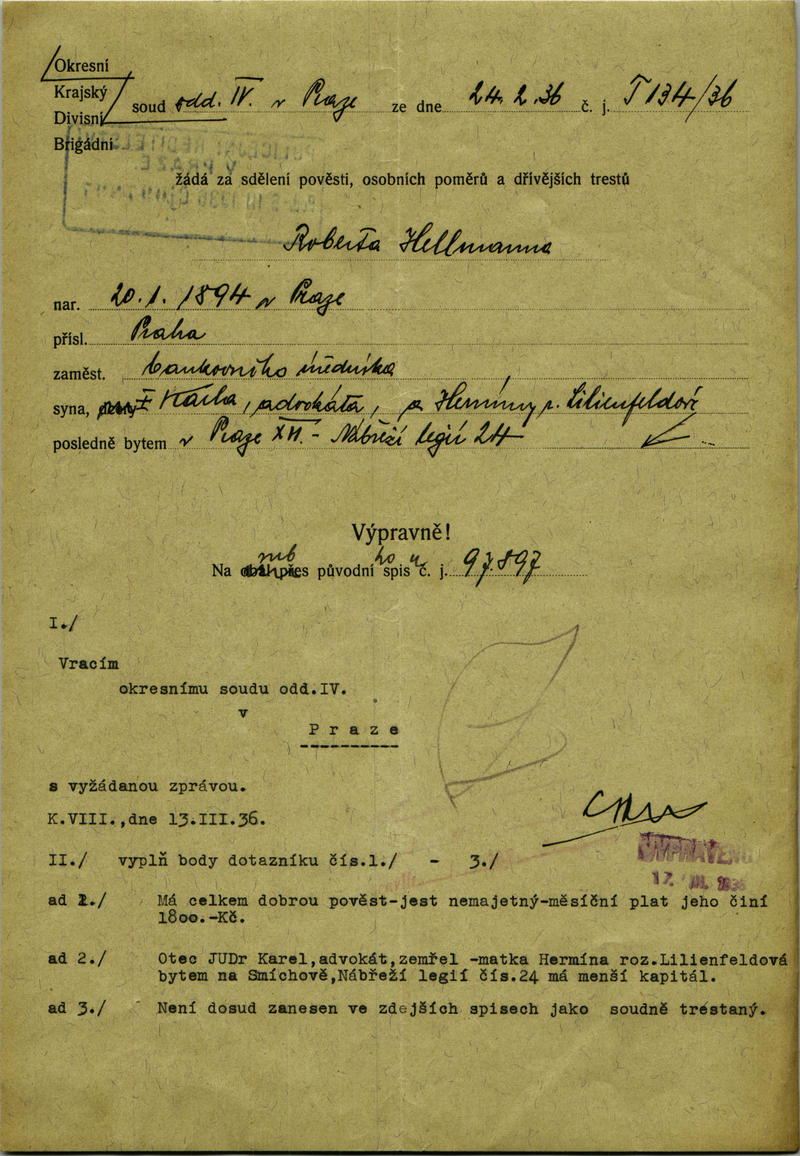 Okresní
Krajský
Divisní
Brigádní
soud odd. IV. v Praze ze dne 24. 2. 36 č. j. T 134/36
žádá za sdělení pověsti, osobních poměrů a dřívějších trestů
Roberta Hellmanna
nar. 20. 1. 1894 v Praze
přísl. Praha
zaměst. bankovního úředníka
syna, Karla, advokáta, a Hermíny r. Lilienfeldové
posledně bytem v Praze XVI. - Nábřeží legií 24
Výpravně!
Na rub původního spisu č. j. 97.897
I./
Vracím
okresnímu soudu odd.IV.
v
Praze
s vyžádanou zprávou.
K.VIII.,dne 13.III.36.
II./ vyplň body dotazníku čís.1./ - 3./
VYPRAVENO
17. III. 1936
ad 1./ Má celkem dobrou pověst-jest nemajetný-měsíční plat jeho činí
1800.-Kč.
ad 2./ Otec JUDr Karel,advokát,zemřel -matka Hermína roz.Lilienfeldová
bytem na Smíchově,Nábřeží legií čís.24 má menší kapitál.
ad 3./ Není dosud zanesen ve zdejších spisech jako soudně trestaný.